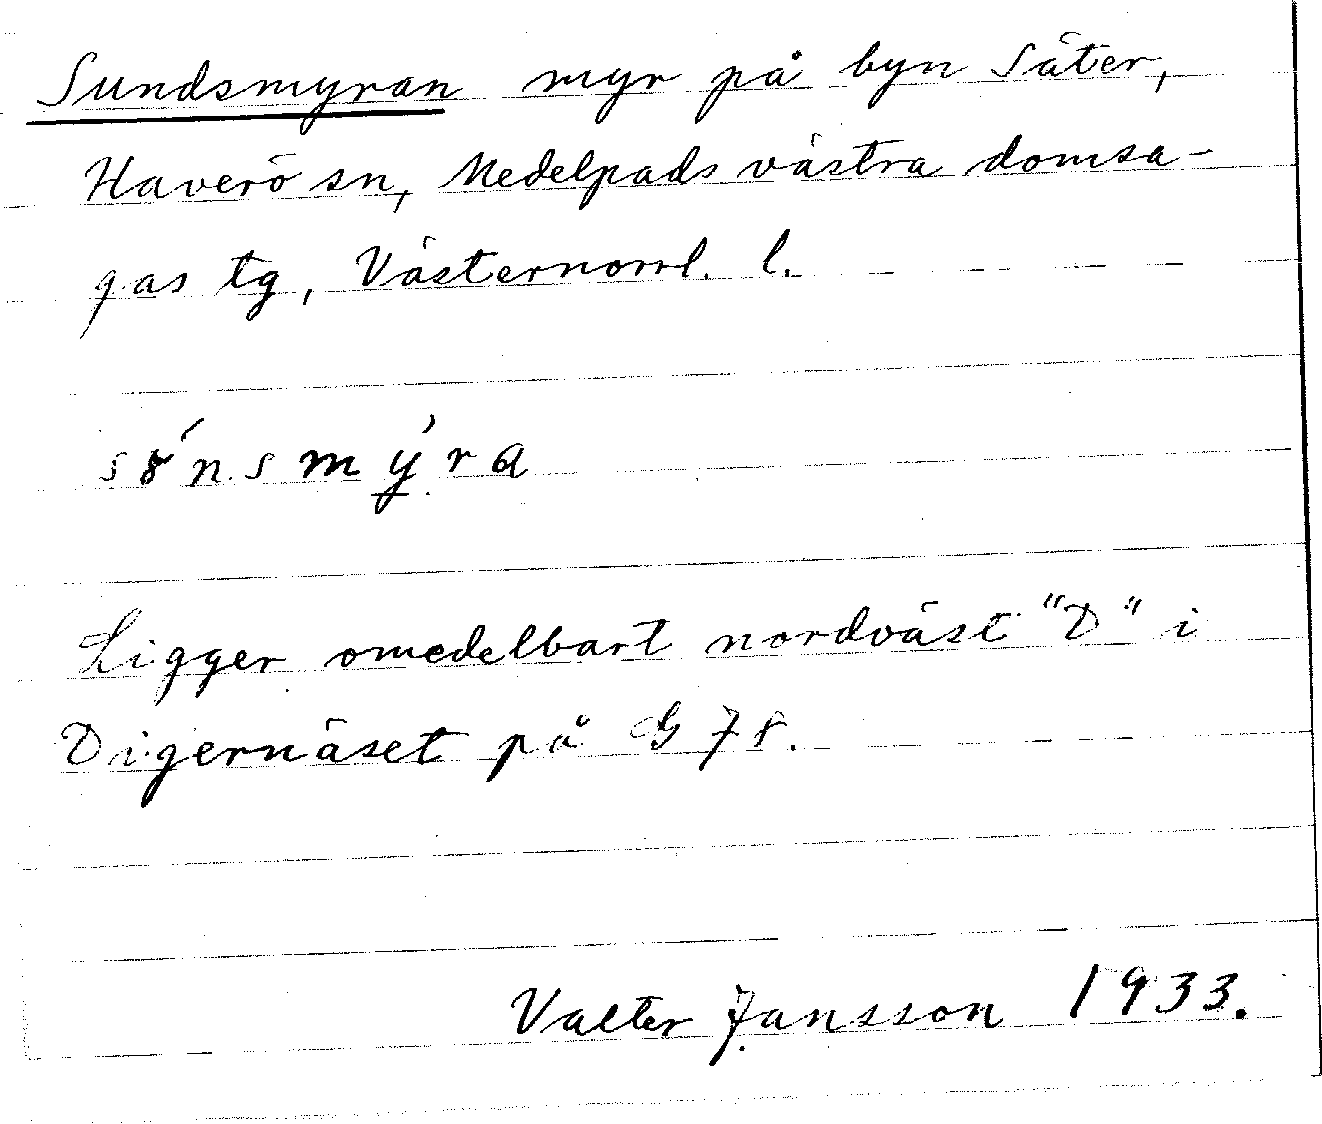 Sundsmyran myr på byn Säter,
Haverö sn, Medelpads västra domsa-
gas tg, Västernorrl. l.
Ligger omedelbart nordväst "D" i
Digernäset på G 78.
Valter Jansson 1933.